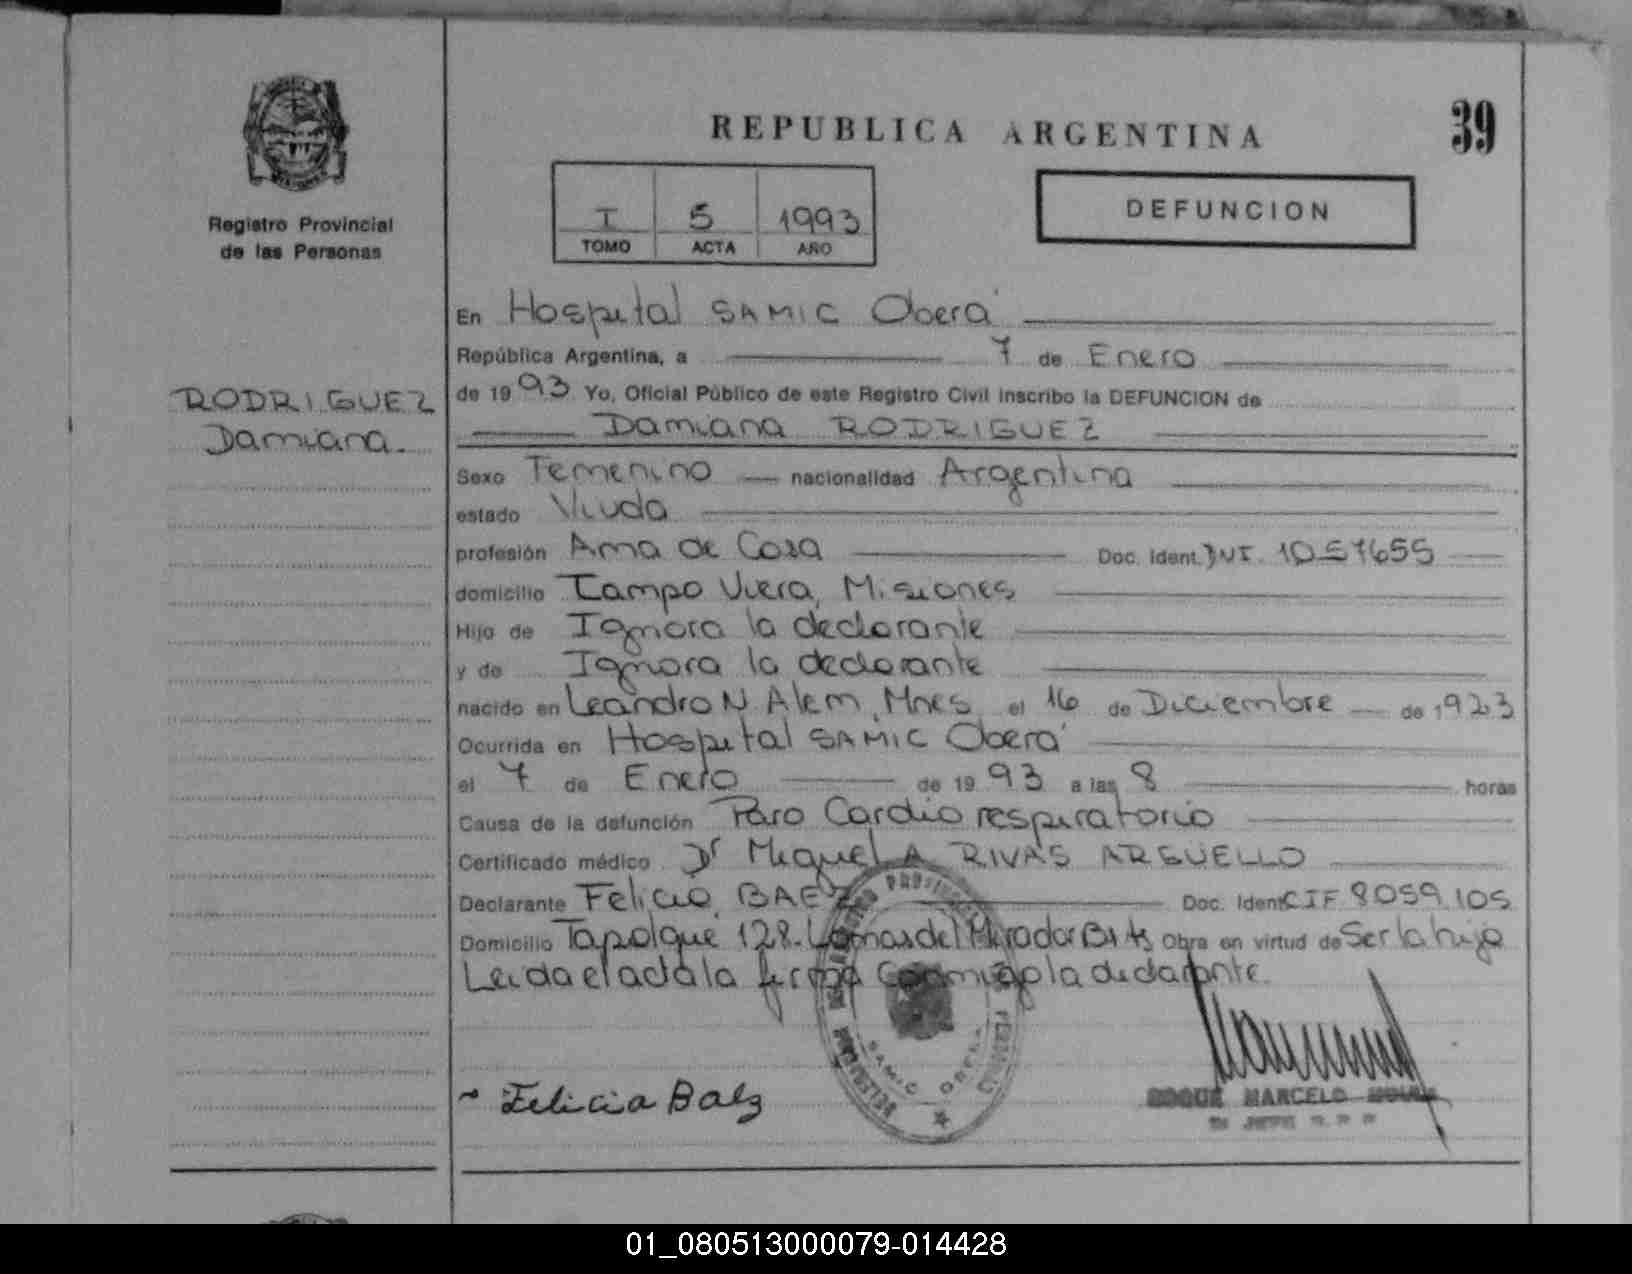 Registro Provincial
de las Personas
RODRIGUEZ
Damiana.
REPUBLICA ARGENTINA
39
I 5 1993
TOMO ACTA AÑO
DEFUNCION
En Hospital SAMIC Oberá
República Argentina, a 7 de Enero
de 1993 Yo, Oficial Público de este Registro Civil inscribo la DEFUNCION de
Damiana RODRIGUEZ
Sexo Femenino nacionalidad Argentina
estado Viuda
profesión Ama de Casa Doc. Ident. 1057655
domicilio Campo Viera, Misiones
Hijo de Ignora la declarante
y de Ignora la declarante
nacido en Leandro N. Alem, Mnes el 16 de Diciembre de 1923
Ocurrida en Hospital SAMIC Oberá
el 7 de Enero de 1993 a las 8 horas
Causa de la defunción Paro Cardio respiratorio
Certificado médico Dr Miguel A RIVAS ARGUELLO
Declarante Felicia BAEZ Doc. Ident CIF 8059.105
Domicilio Tapalque 128-Lomas del Mirador Bs As Obra en virtud de Ser la hija
Leida el acta la firma Conmigo la declarante.
Felicia Baez
SAMIC OBERA
ROQUE MARCELO
01_080513000079-014428